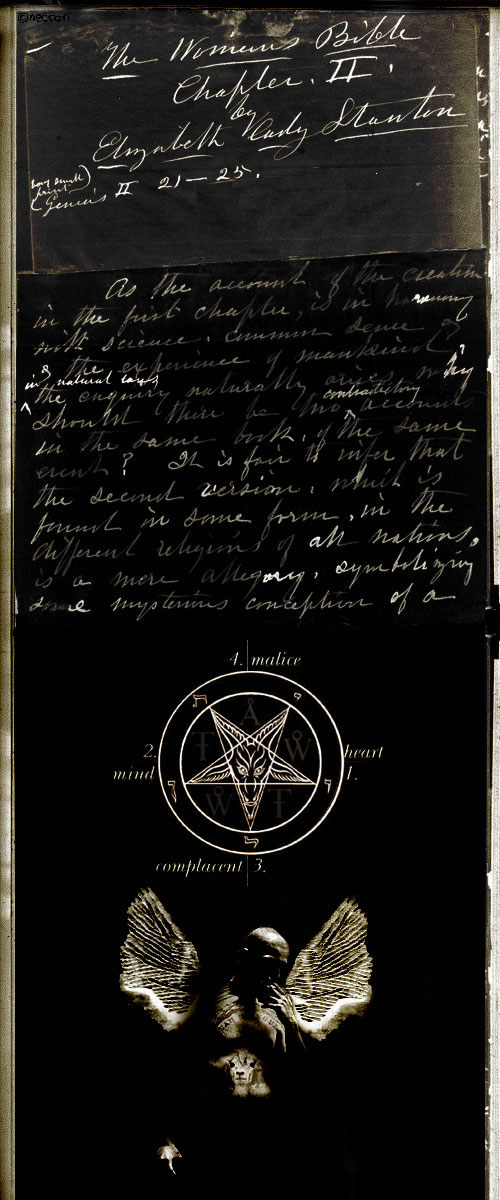 ©necron
The Womens Bible
Chapter. II.
by
Elizabeth Cady Stanton
(very small print)
(Genesis II 21–25.
As the account of the creation
in the first chapter, is in harmony
with science, common sense &
& the experience of mankind
in natural laws,
the enquiry naturally arises, why
contradictory
should there be two accounts
in the same book, of the same
event? It is fair to infer that
the second version, which is
found in some form, in the
different religions of all nations,
is a mere allegory, symbolizing
some mysterious conception of a
4. malice
ת י
A
2. T W heart
mind 1.
ו ן
W T
ל
complacent 3.